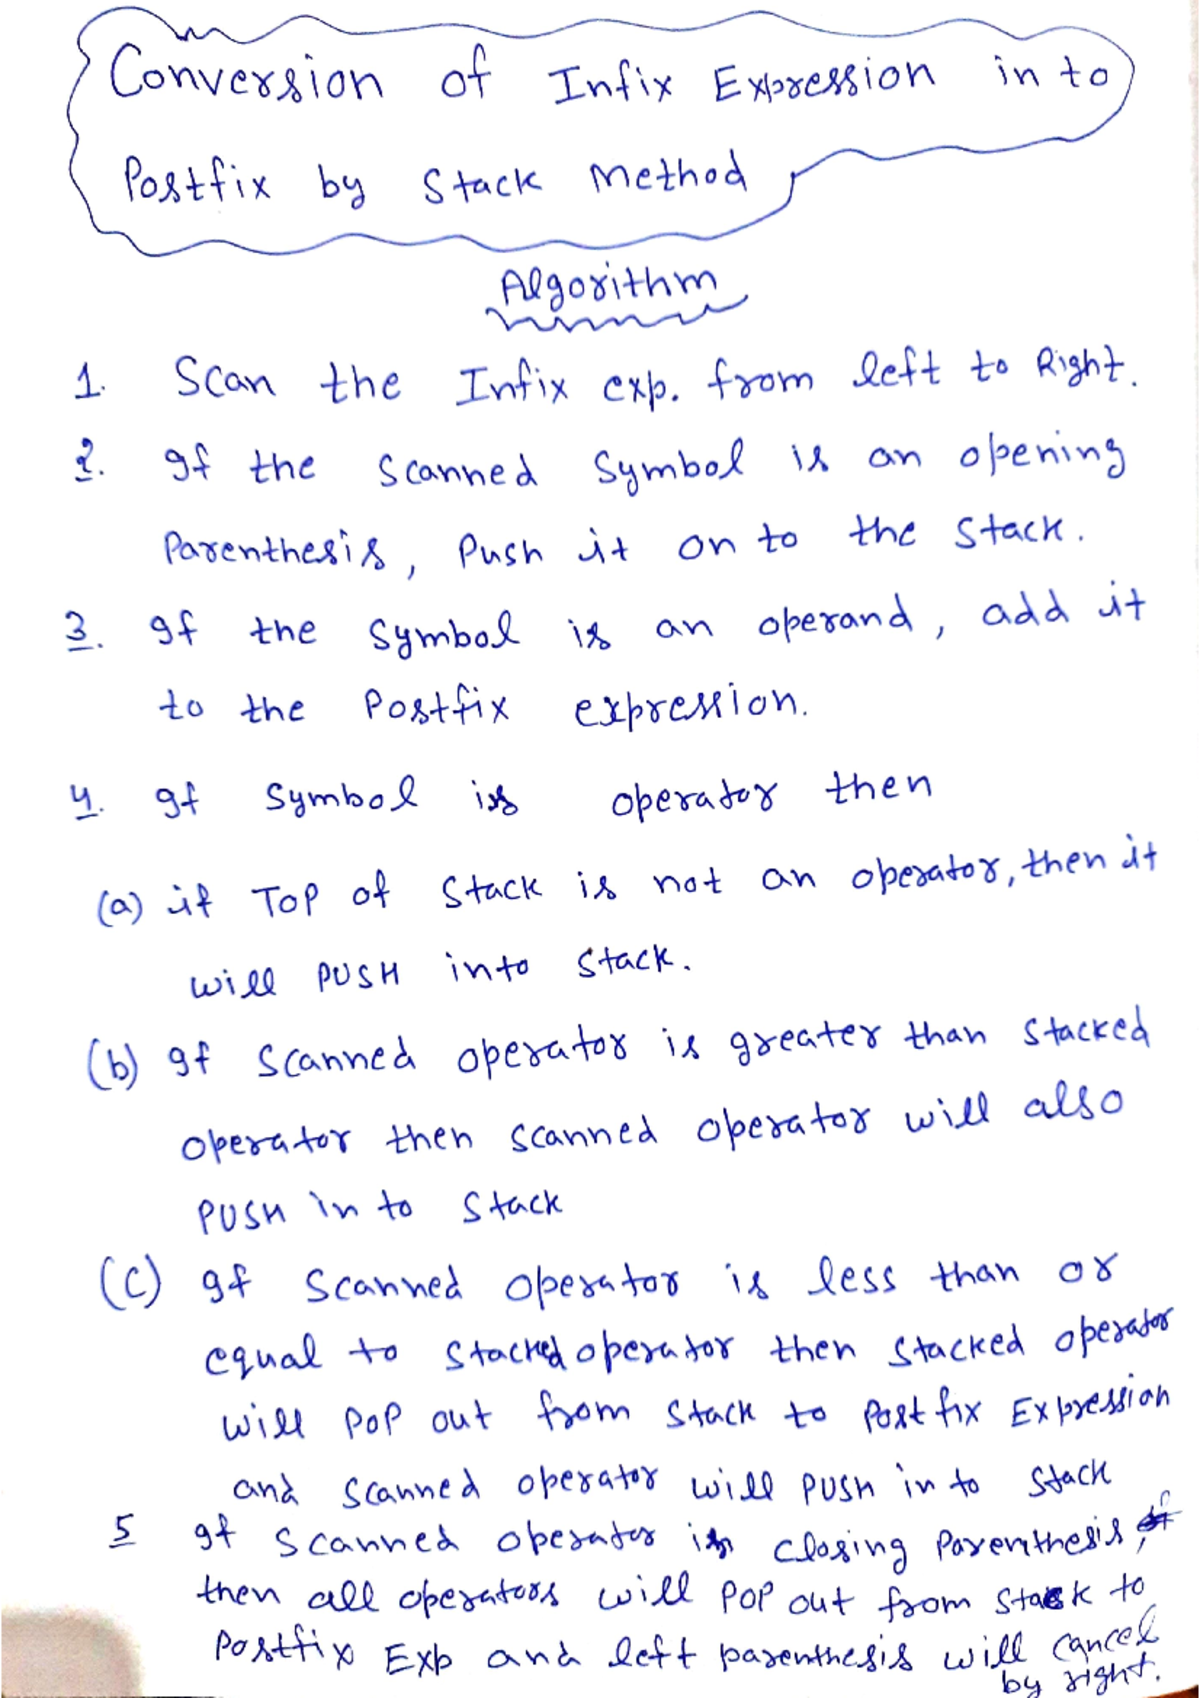 Conversion of Infix Expression in to
Postfix by Stack Method
Algorithm
1. Scan the Infix exp. from left to Right.
2. If the Scanned Symbol is an opening
Parenthesis, Push it on to the Stack.
3. If the Symbol is an operand, add it
to the Postfix expression.
4. If Symbol is operator then
(a) if TOP of Stack is not an operator, then it
will PUSH into Stack.
(b) If Scanned operator is greater than Stacked
operator then scanned operator will also
PUSH in to Stack
(C) If Scanned operator is less than or
equal to Stacked operator then Stacked operator
will POP out from Stack to Postfix Expression
and Scanned operator will PUSH in to Stack
5 If Scanned operator is closing Parenthesis,
then all operators will POP out from Stack to
Postfix Exp and left parenthesis will cancel
by right.